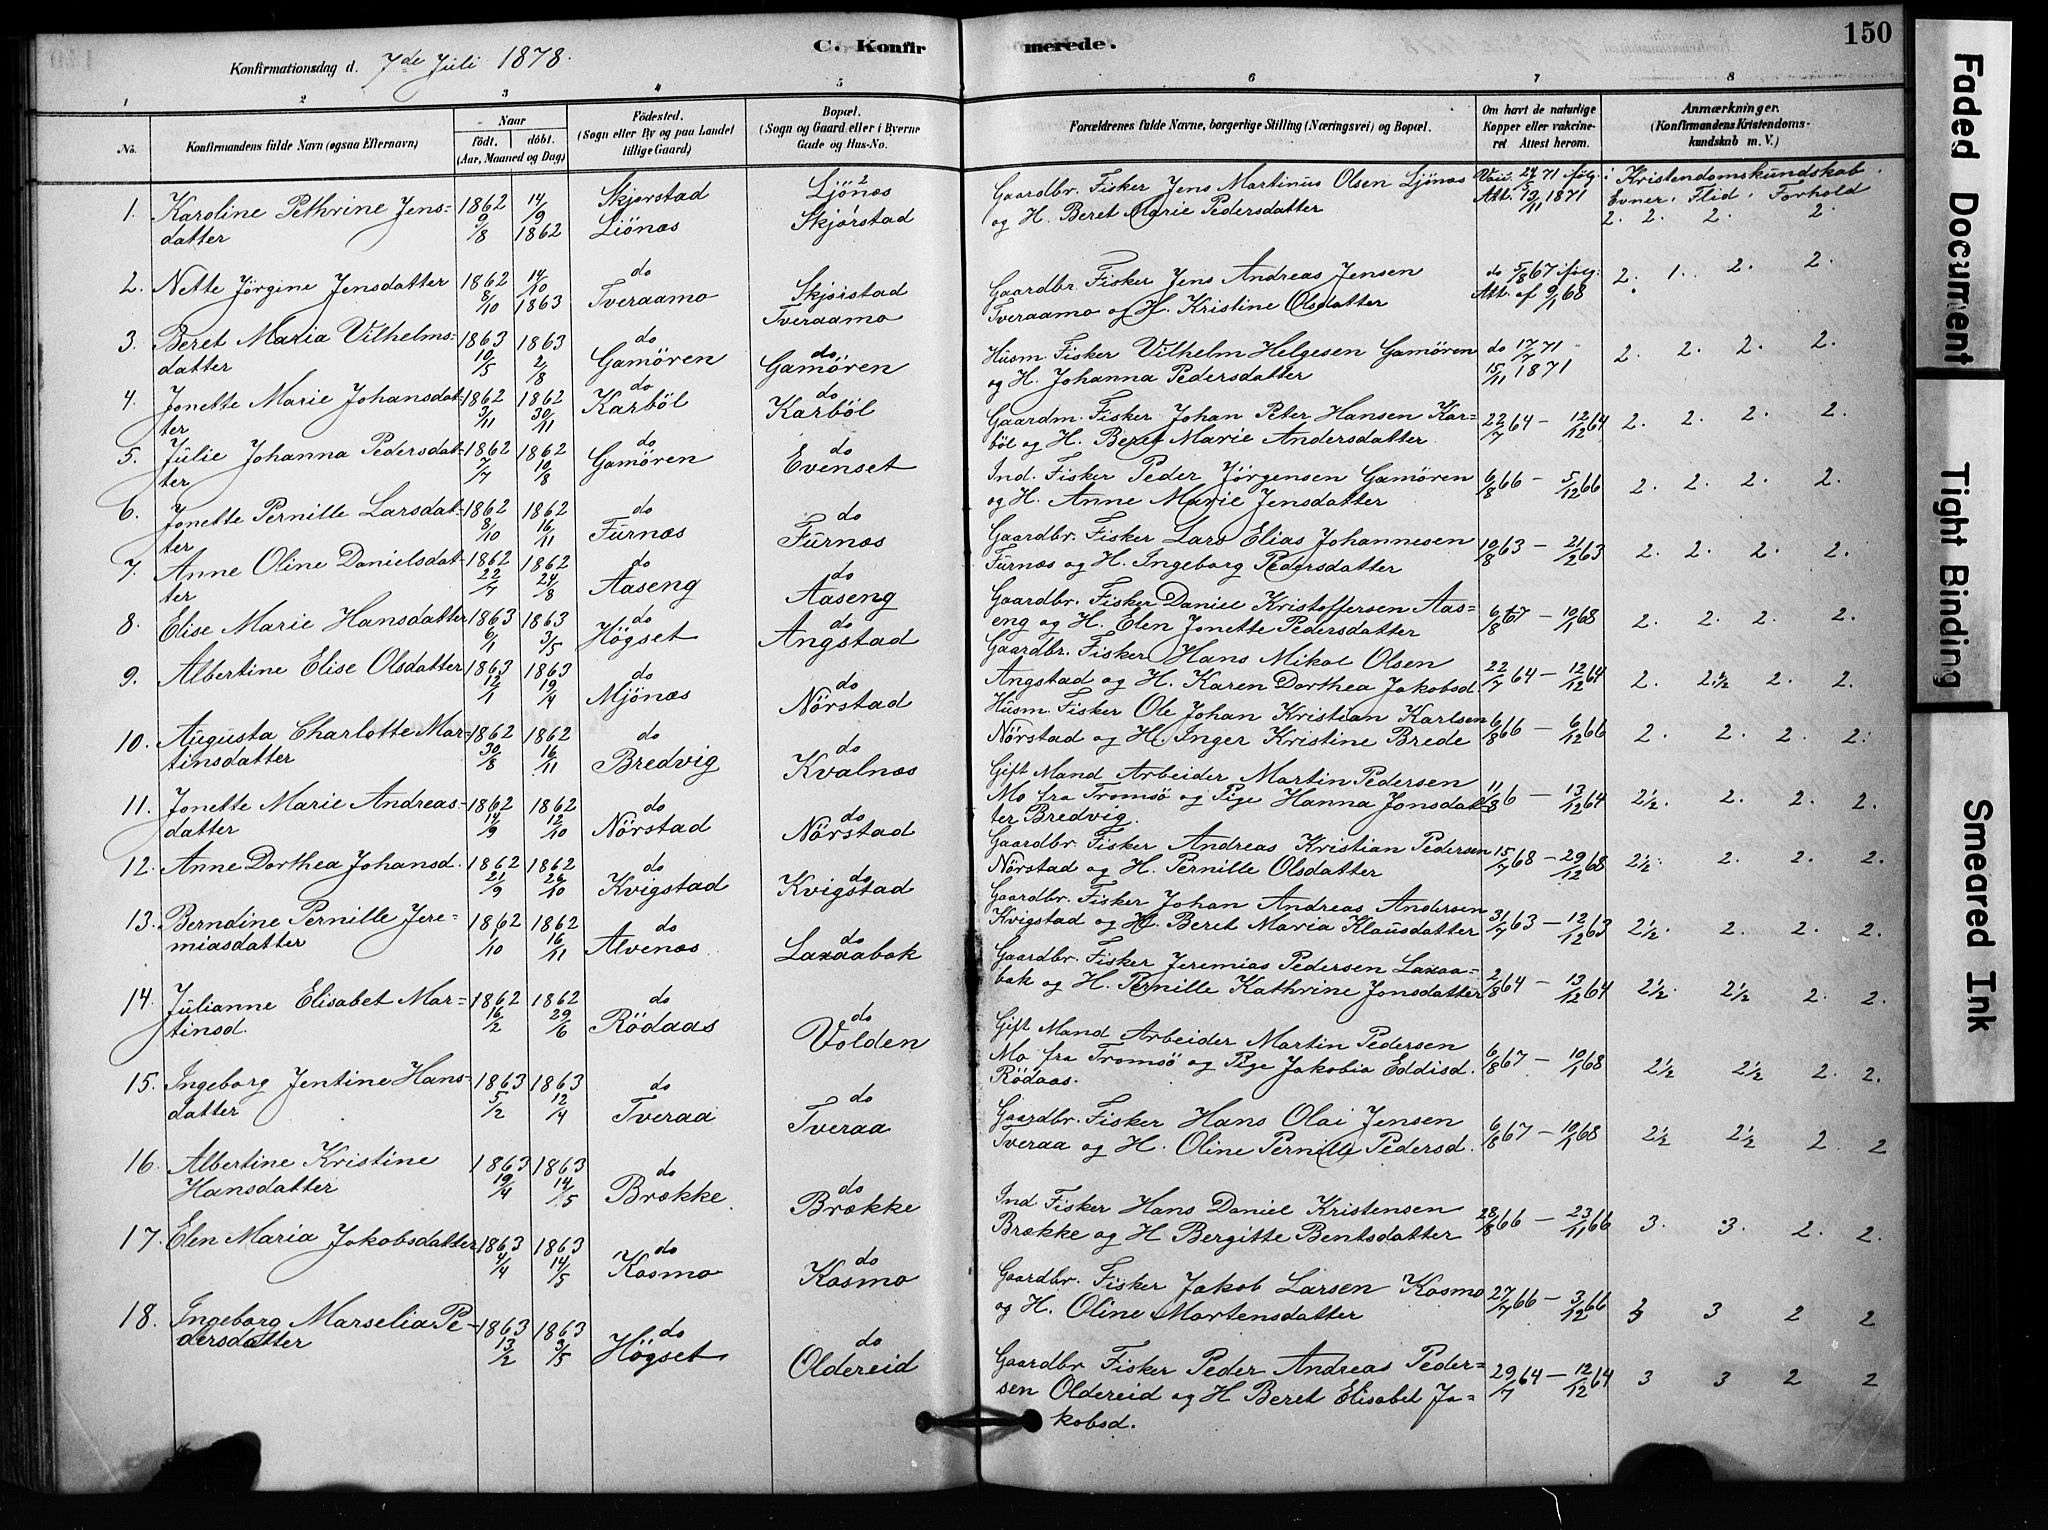 150
C. Konfirmerede.
Konfirmationsdag d. 7de Juli 1878.
1 2 3 4 5 6 7 8
No. Konfirmandens fulde Navn (ogsaa Efternavn) Naar födt. döbt. (Aar, Maaned og Dag) Födested. (Sogn eller By og paa Landet tillige Gaard.) Bopæl. (Sogn og Gaard eller i Byerne Gade og Hus-No. Forældrenes fulde Navne, borgerlige Stilling (Næringsvei) og Bopæl. Om havt de naturlige Kopper eller vakcineret Attest herom. Anmærkninger. (Konfirmandens Kristendomskundskab m. V.)
1. Karoline Pethrine Jens- 1862 14/9 Skjerstad Ljönes Gaardbr. Fisker Jens Martinus Olsen Ljönes Vac. 24/5 71 ifølg. i Kristendomskundskab.
datter 9/8 1862 Liönes Skjerstad og H. Beret Marie Pedersdatter Att. 13/11 1871 Evner. Flid. Forhold
2. 2. 2. 2.
2. Nette Jörgine Jensdatter 1862 14/10 do Skjerstad Gaardbr Fisker Jens Andreas Jensen do 5/8 67 ifølg. 2. 1. 2. 2.
8/10 1863 Tveraamo Tveraamo Tveraamo og H. Kristine Olsdatter Att. af 9/1 68
3. Beret Maria Vilhelms- 1863 1863 do do Husm. Fisker Vilhelm Helgesen Gamören do 17/7 71 2. 2. 2. 2.
datter 10/5 2/8 Gamören Gamören og H. Johanna Pedersdatter 15/11 1871
4. Jonette Marie Johansdat- 1862 1862 do do Gaardm. Fisker Johan Peter Hansen Kar- 22/7 64 — 12/12 64 2. 2. 2. 2.
ter 3/11 30/11 Karböl Karböl böl og H. Beret Marie Andersdatter
5. Julie Johanna Pedersdat- 1862 1862 do do Ind. Fisker Peder Jörgensen Gamören 6/8 66 — 5/12 66 2. 2. 2. 2.
ter 7/7 10/8 Gamören Evenset og H. Anne Marie Jensdatter
6. Jonette Pernille Larsdat- 1862 1862 do do Gaardbr. Fisker Lars Elias Johannesen 10/8 63 — 21/2 63 2. 2. 2. 2.
ter 8/10 16/11 Furnes Furnes Furnes og H. Ingeborg Pedersdatter
7. Anne Oline Danielsdat- 1862 1862 do do Gaardbr. Fisker Daniel Kristoffersen Aas- 6/8 67 — 10/1 68 2. 2. 2. 2.
ter 22/7 24/8 Aaseng Aaseng eng og H. Elen Jonette Pedersdatter
8. Elise Marie Hansdatter 1863 1863 do do Gaardbr. Fisker Hans Mikal Olsen 22/7 64 — 12/12 64 2. 2.½ 2. 2.
6/1 3/5 Högset Angstad Angstad og H. Karen Dorthea Jakobsd.
9. Albertine Elise Olsdatter 1863 1863 do do Husm. Fisker Ole Johan Kristian Karlsen 6/8 66 — 6/12 66 2. 2. 2. 2.
12/1 19/4 Mjönes Nörstad Nörstad og H. Inger Kristine Brede
10. Augusta Charlotte Mar- 1862 1862 do do Gift Mand Arbeider Martin Pedersen 13/12 64 2½. 2. 2. 2.
tinsdatter 30/8 16/11 Bredvig Kvalnes Mo fra Tromsö og Pige Hanna Jonsdat-
ter Bredvig.
11. Jonette Marie Andreas- 1862 1862 do do Gaardbr. Fisker Andreas Kristian Pedersen 15/7 68 — 29/12 68 2½. 2. 2. 2.
datter 14/9 12/10 Nörstad Nörstad Nörstad og H. Pernille Olsdatter
12. Anne Dorthea Johansd. 1862 1862 do do Gaardbr. Fisker Johan Andreas Andersen 31/7 63 — 12/12 63 2½. 2. 2. 2.
21/9 26/10 Kvigstad Kvigstad Kvigstad og H. Beret Maria Klausdatter
13. Berndine Pernille Jere- 1862 1862 do do Gaardbr. Fisker Jeremias Pedersen Laxaa- 2/8 64 — 13/12 64 2½ 2½ 2. 2.
miasdatter 1/10 16/11 Alvenes Laxaabak bak og H. Pernille Kathrine Jonsdatter
14. Julianne Elisabet Mar- 1862 1862 do do Gift Mand Arbeider Martin Pedersen 6/8 67 — 10/1 68 2½ 2½ 2. 2.
tinsd. 16/2 29/6 Rödaas Volden Mo fra Tromsö og Pige Jakobia Eddisd.
Rödaas.
15. Ingeborg Jentine Hans- 1863 1863 do do Gaardbr. Fisker Hans Olai Jensen 6/8 67 — 10/1 68 2½ 2½ 2. 2
datter 5/2 12/4 Tveraa Tveraa Tveraa og H. Oline Pernille Pedersd.
16. Albertine Kristine 1863 1863 do do Ind. Fisker Hans Daniel Kristensen 28/8 66 — 23/11 66 3. 3. 2. 2.
Hansdatter 19/4 14/5 Brække. Brække Brække og H Bergitte Bentsdatter
17. Elen Maria Jakobsdatter 1863 1863 do do Gaardbr. Fisker Jakob Larsen Kosmo 27/7 66 — 3/12 66 3 3 2 2
4/4 14/5 Kosmo Kosmo og H. Oline Martensdatter
18. Ingeborg Marselia Pe- 1863 1863 do do Gaardbr Fisker Peder Andreas Peder- 29/7 64 — 12/12 64 3 3 2 2
dersdatter 13/2 3/5 Högset Oldereid sen Oldereid og H Beret Elisabet Ja-
kobsd.
Faded Document
Tight Binding
Smeared Ink